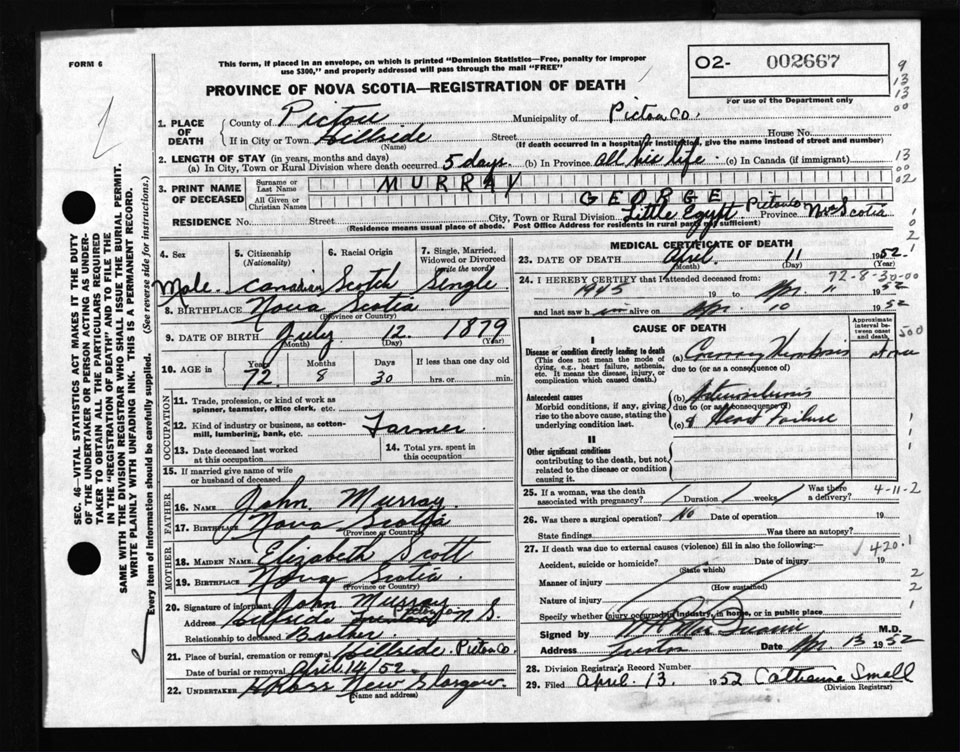 FORM 6
This form, if placed in an envelope, on which is printed "Dominion Statistics—Free, penalty for improper
use $300," and properly addressed will pass through the mail "FREE"
02- 002667
For use of the Department only
PROVINCE OF NOVA SCOTIA—REGISTRATION OF DEATH
1. PLACE OF DEATH
County of Pictou Municipality of Pictou Co.
If in City or Town Hillside Street House No.
(Name) (If death occurred in a hospital or institution, give the name instead of street and number)
2. LENGTH OF STAY (in years, months and days)
(a) In City, Town or Rural Division where death occurred 5 days. (b) In Province all his life. (c) In Canada (if immigrant)
3. PRINT NAME OF DECEASED
Surname or Last Name MURRAY
All Given or Christian Names GEORGE
RESIDENCE No. Street City, Town or Rural Division Little Egypt Pictou Co Province Nova Scotia
(Residence means usual place of abode. Post Office Address for residents in rural parts not sufficient)
4. Sex
Male
5. Citizenship
(Nationality)
Canadian
6. Racial Origin
Scotch
7. Single, Married,
Widowed or Divorced
(write the word)
Single
8. BIRTHPLACE Nova Scotia
(Province or Country)
9. DATE OF BIRTH July 12 1879
(Month) (Day) (Year)
10. AGE in
Years Months Days If less than one day old
72 8 30 hrs. or min.
OCCUPATION
11. Trade, profession, or kind of work as
spinner, teamster, office clerk, etc.
12. Kind of industry or business, as cotton-
mill, lumbering, bank, etc. Farmer
13. Date deceased last worked
at this occupation
14. Total yrs. spent in
this occupation
15. If married give name of wife
or husband of deceased
FATHER
16. Name John Murray
17. Birthplace Nova Scotia
(Province or Country)
MOTHER
18. MAIDEN NAME Elizabeth Scott
19. BIRTHPLACE Nova Scotia
(Province or Country)
20. Signature of informant John Murray
Address Hillside Trenton N.S.
Relationship to deceased Brother
21. Place of burial, cremation or removal Hillside. Pictou Co
Date of burial or removal April 14/52
22. UNDERTAKER New Glasgow
(Name and address)
MEDICAL CERTIFICATE OF DEATH
23. DATE OF DEATH April 11 1952
(Month) (Day) (Year)
72-8-30-00
24. I HEREBY CERTIFY that I attended deceased from:
1945 19 to Apr 11 1952
and last saw him alive on Apr 10 1952
CAUSE OF DEATH
Approximate interval between onset and death
I
Disease or condition directly leading to death
(This does not mean the mode of
dying, e.g., heart failure, asthenia,
etc. It means the disease, injury, or
complication which caused death.)
(a) Coronary Thrombosis
due to (or as a consequence of)
Antecedent causes
Morbid conditions, if any, giving
rise to the above cause, stating the
underlying condition last.
(b)
due to (or as a consequence of)
(c) Heart Failure
II
Other significant conditions
contributing to the death, but not
related to the disease or condition
causing it.
25. If a woman, was the death
associated with pregnancy? Duration weeks Was there
a delivery? 4-11-2
26. Was there a surgical operation? No Date of operation 19
State findings Was there an autopsy?
27. If death was due to external causes (violence) fill in also the following:—
420.1
Accident, suicide or homicide? Date of injury 19
(State which)
Manner of injury
(How sustained)
Nature of injury
Specify whether injury occurred in industry, in home, or in public place
Signed by M.D.
Address Trenton Date Apr. 13 1952
28. Division Registrar's Record Number
29. Filed April. 13. 1952 Catherine Small
(Division Registrar)
SEC. 46—VITAL STATISTICS ACT MAKES IT THE DUTY
OF THE UNDERTAKER OR PERSON ACTING AS UNDER-
TAKER TO OBTAIN ALL THE PARTICULARS REQUIRED
IN THE "REGISTRATION OF DEATH" AND TO FILE THE
SAME WITH THE DIVISION REGISTRAR WHO SHALL ISSUE THE BURIAL PERMIT.
WRITE PLAINLY WITH UNFADING INK. THIS IS A PERMANENT RECORD.
Every item of information should be carefully supplied. (See reverse side for instructions.)
9
13
13
00
13
00
02